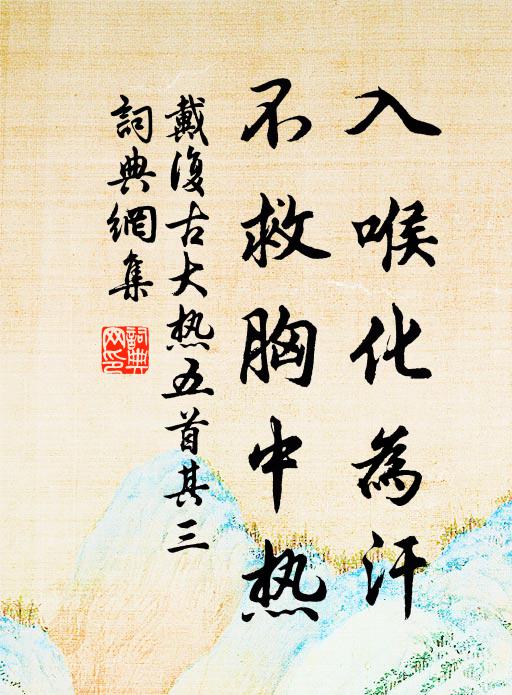 入喉化為汗
不救胸中热
戴復古大热五首其三
詞典網集
詞典网印